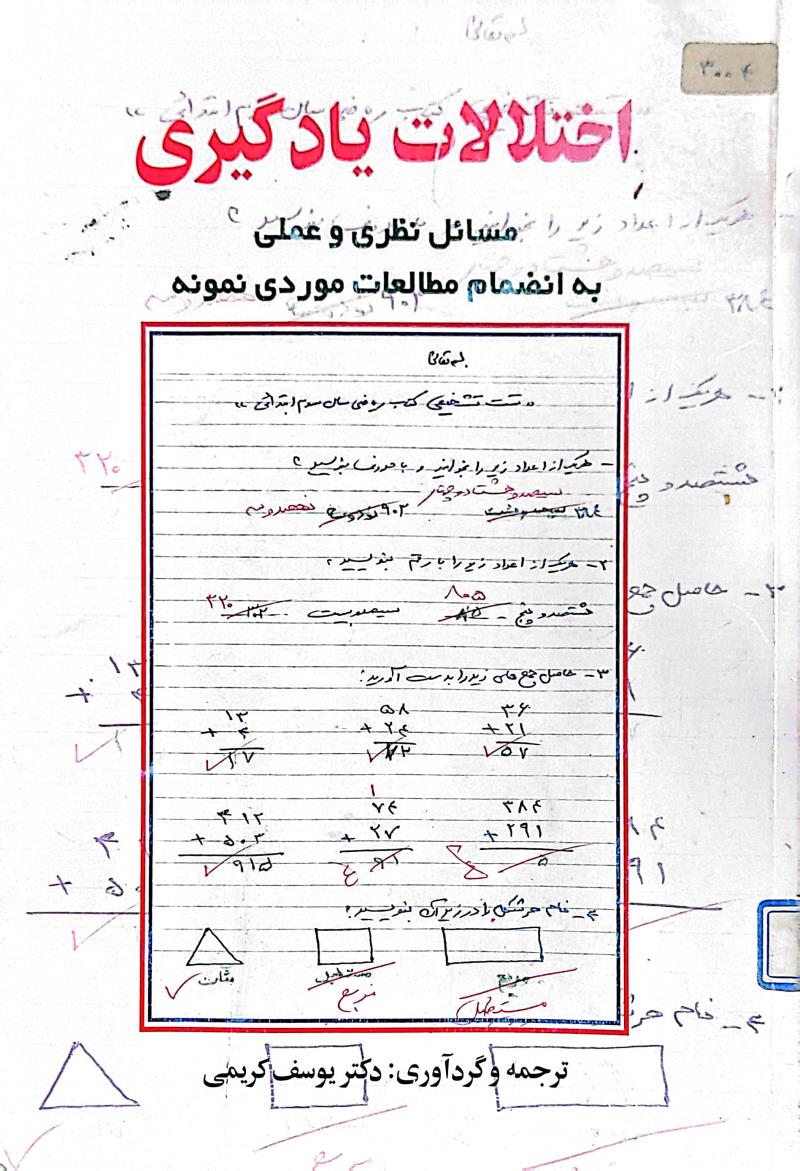 بسمه تعالی
۳۰۰۴
اختلالات یادگیری
مسائل نظری و عملی
به انضمام مطالعات موردی نمونه
بسمه تعالی
«تست تشخیصی کتاب ریاضی سال سوم ابتدائی»
هریک از اعداد زیر را بخوانید و با حروف بنویسید؟
سیصد و هشتاد و چهار
۳۸۴ ۹۰۲ نهصد و سه
۲- هریک از اعداد زیر را با رقم بنویسید.
۸۰۵ ۳۲۰
هشتصد و پنج ۸۵ سیصد و بیست ۳۰۲
۳- حاصل جمع های زیر را بدست آورید:
۳۶ ۵۸ ۱۳
+ ۲۱ + ۲۴ + ۴
۵۷ ۷۲ ۱۷
۱
۳۸۴ ۷۴ ۴۱۲
+ ۲۹۱ + ۲۷ + ۵۰۳
۵ ۹۱ ۹۱۵
۴- نام هر شکل را در زیر آن بنویسید:
مربع مستطیل مثلث
مستطیل مربع
ترجمه و گردآوری: دکتر یوسف کریمی